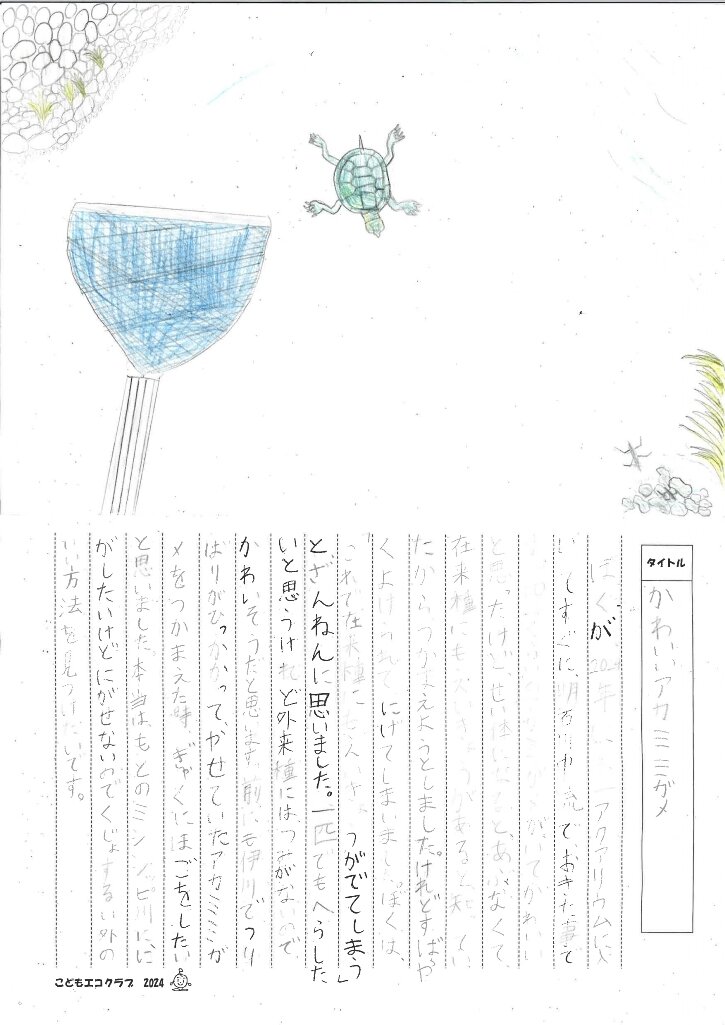 タイトル
かわいいアカミミガメ
ぼくが 2024年 アクアリウムに入
いてすぐに、明石川中流で、おきた事で
がいてかわいい
と思ったけど、せい体になると、あぶなくて
在来種にも大いきょうがあると知
たからつかまえようとしました。けれどすばや
くよけられて、にげてしまいました。ぼくは、
「これで在来種に つがでてしまう」
とざんねんに思いました。一匹でもへらした
いと思うけれど外来種には、つみがないので、
かわいそうだと思います。前にも伊川でつり
ばりがひっかかって、やせていたアカミミガ
メをつかまえた時、ぎゃくにほごをしたい
と思いました。本当はもとのミシシッピ川に、に
がしたいけどにがせないのでくじょする以外の
いい方法を見つけたいです。
こどもエコクラブ 2024